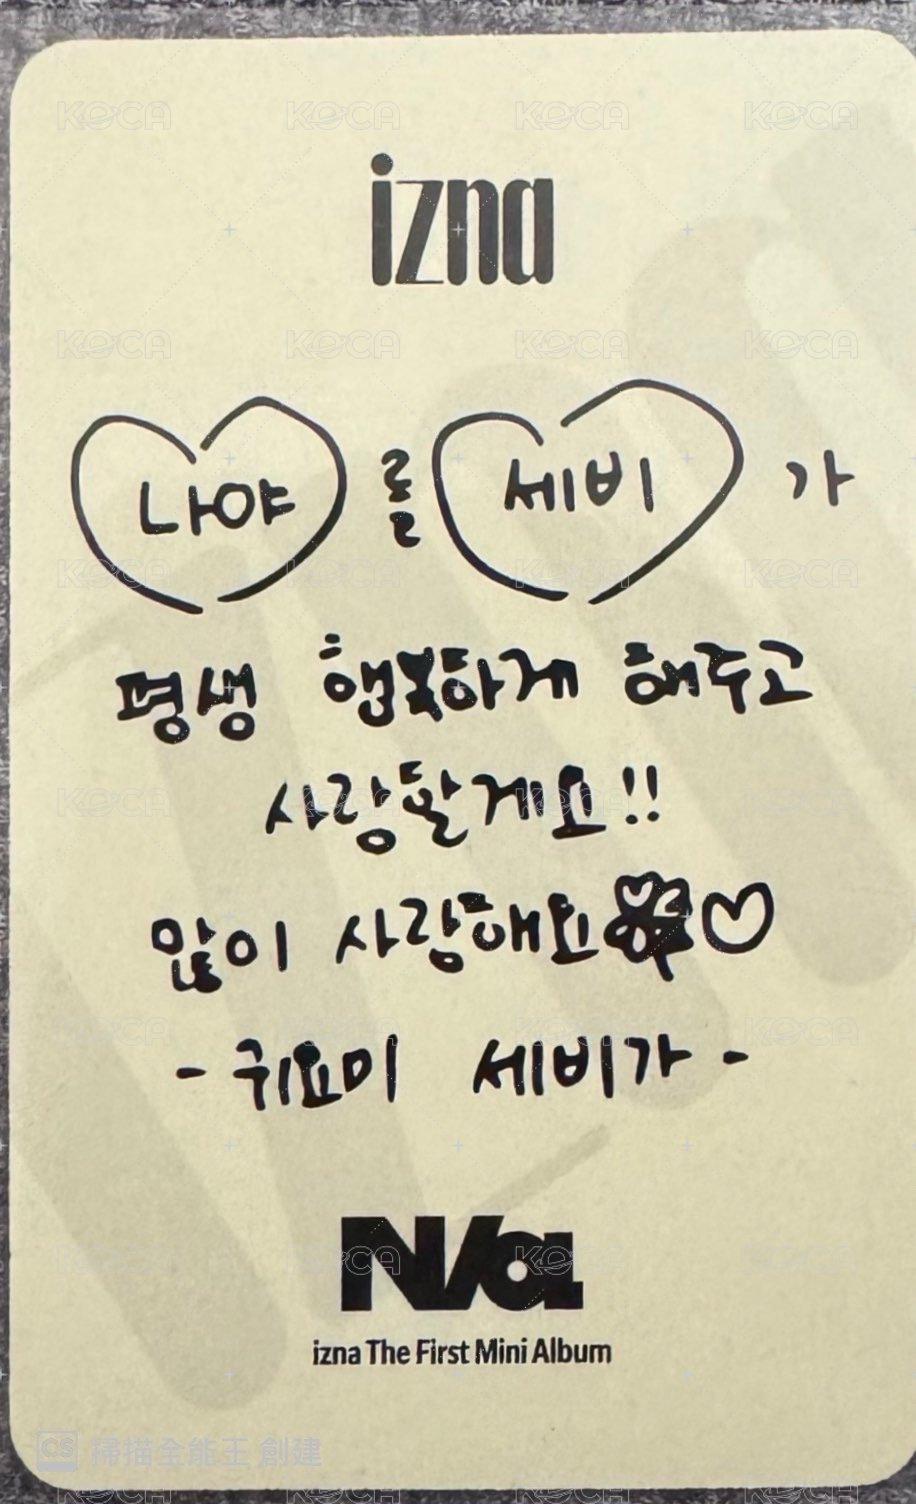 izna
나야 를 세비 가
평생 행복하게 해주고
사랑할게요!!
많이 사랑해요♡
- 귀요미 세비가 -
N/a
izna The First Mini Album
CS 掃描全能王 創建
KOCA